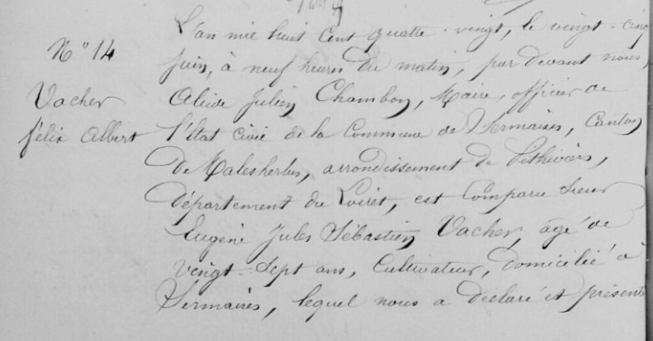 N° 14
Vacher
félix Albert
L'an mil huit cent quatre-vingt, le vingt-cinq
juin, à neuf heures du matin, par devant nous,
Alcide Julien Chambon, Maire, officier de
l'état civil de la Commune de Sermaises, Canton
de Malesherbes, arrondissement de Pithiviers,
département du Loiret, est comparu sieur
Eugène Jules Sébastien Vacher, âgé de
vingt-sept ans, Cultivateur, domicilié à
Sermaises, lequel nous a déclaré et présenté